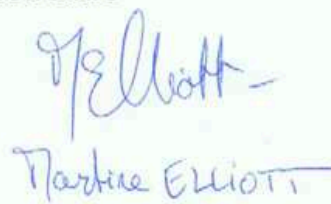 MElliott
Martine ELLIOTT